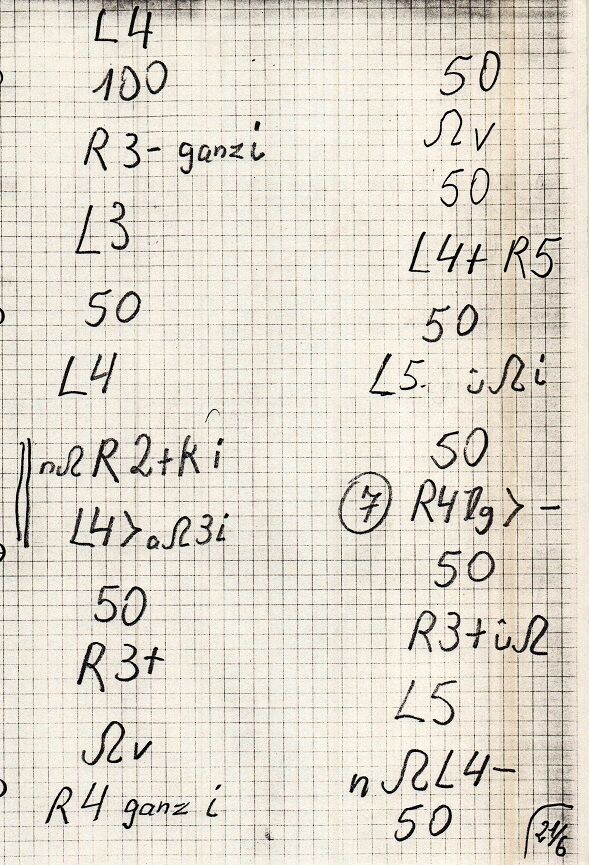 L4
100
R3- ganz i
L3
50
L4
nΩ R2+K i
L4> aΩ3i
50
R3+
Ωv
R4 ganz i
50
Ωv
50
L4+ R5
50
L5. üΩi
50
7 R4 lg > -
50
R3+üΩ
L5
nΩL4-
50
21/6